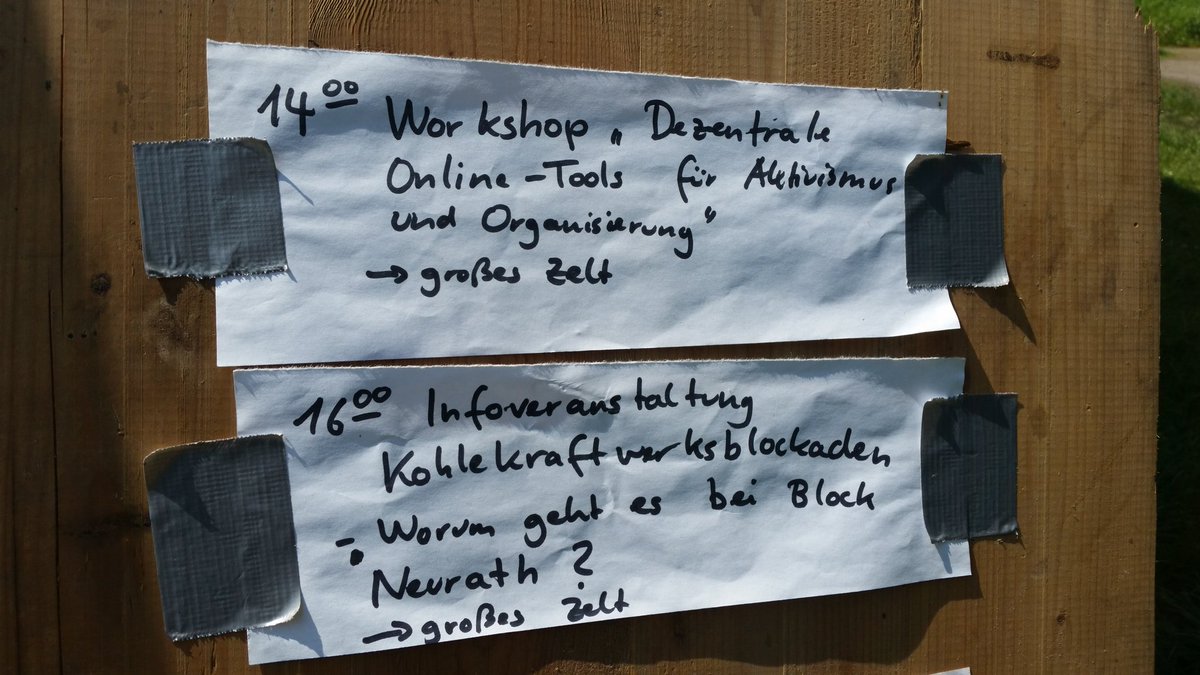 14⁰⁰ Workshop „Dezentrale
Online-Tools für Aktivismus
und Organisierung“
→ großes Zelt
16⁰⁰ Infoveranstaltung
Kohlekraftwerksblockaden
- Worum geht es bei Block
Neurath?
→ großes Zelt